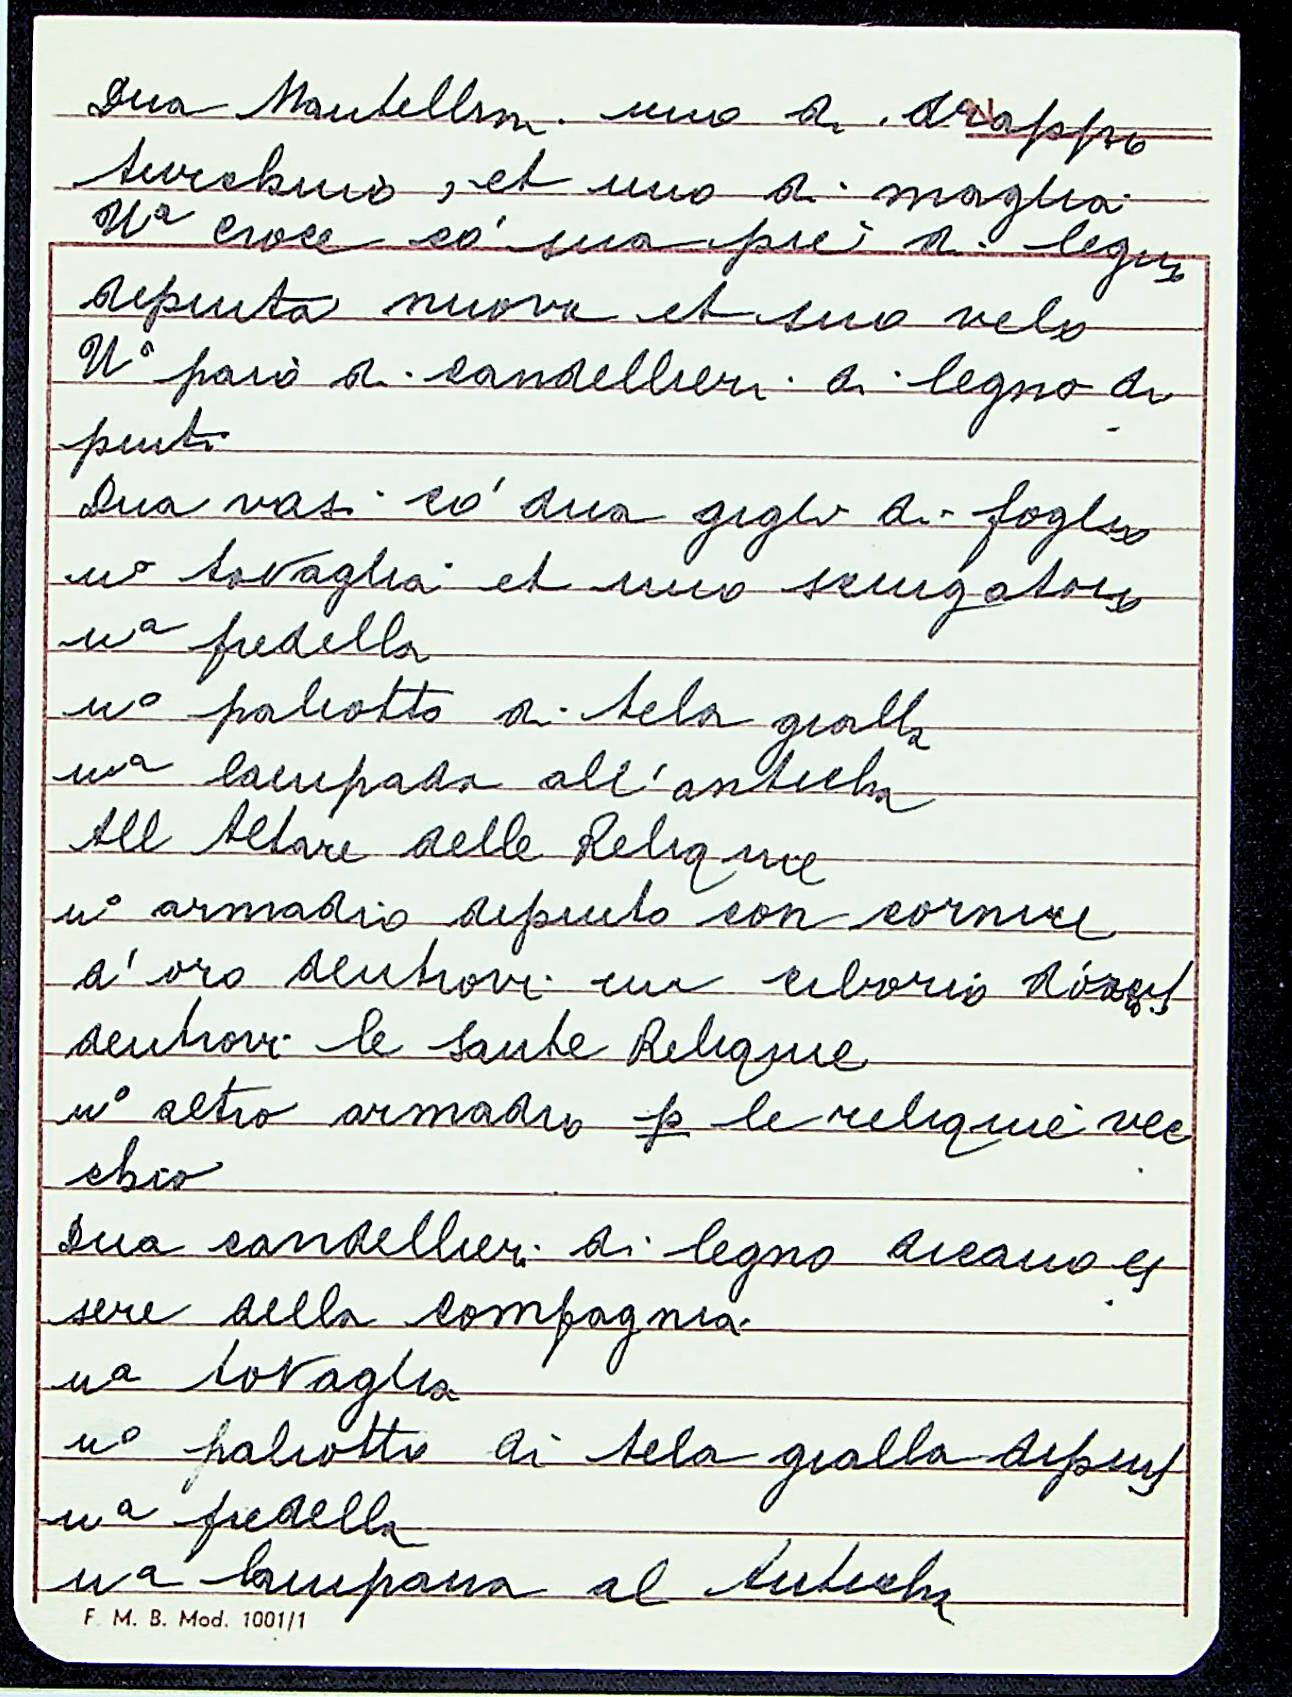 Dua Mantellini. uno di. drappo
turchino, et uno di maglia
Nª croce có sua piè di legno
depinta nuova et suo velo
Nº paio di candellieri di legno di
pinti
Dua vasi có dua gigli di foglio
nº tovaglia et uno sciugatoio
nª predella
nº paliotto di tela gialla
una lampada all'anticha
All Altare delle Reliquie
nº armadio depinto con cornice
d'oro dentrovi un ciborio
dentrovi le Sante Reliquie
nº altro armadio p le reliquie vec
chio
Dua candellieri di legno dicano es
sere della compagnia
nª tovaglia
nº paliotto di tela gialla
nª predella
nª lampana al Anticha
F. M. B. Mod. 1001/1